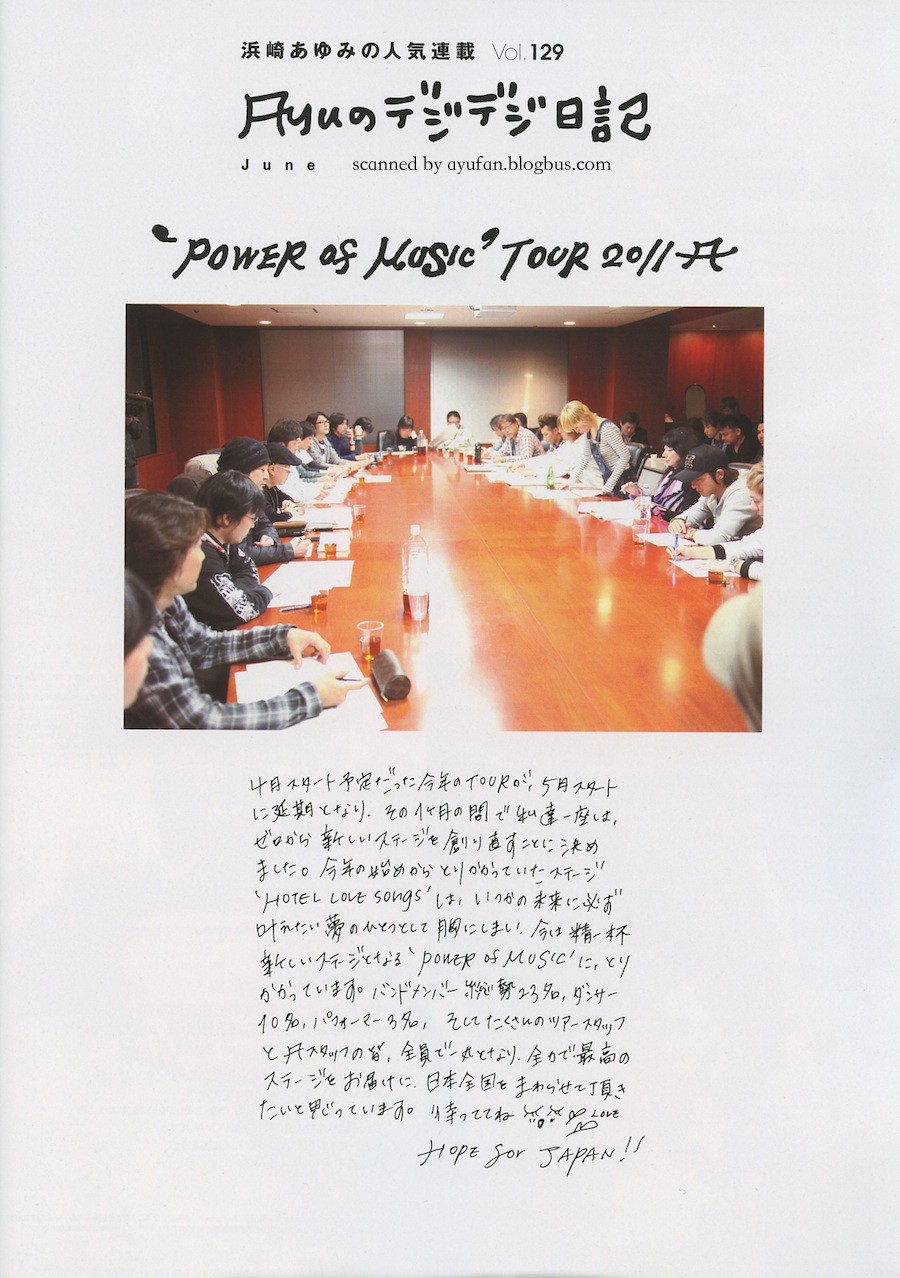 浜崎あゆみの人気連載 Vol.129
Ayuのデジデジ日記
June scanned by ayufan.blogbus.com
"POWER of MUSIC" TOUR 2011 A
4月スタート予定だった今年のTOURが、5月スタート
に延期となり、その1ヶ月の間で私達一座は、
ゼロから新しいステージを創り直すことに決め
ました。今年の始めからとりかかっていたステージ
'HOTEL LOVE songs'は、いつかの未来に必ず
叶えたい夢のひとつとして胸にしまい、今は精一杯
新しいステージとなる'POWER of MUSIC'に、とり
かかっています。バンドメンバー総勢23名、ダンサー
10名、パフォーマー3名、そしてたくさんのツアースタッフ
とAスタッフの皆、全員で一丸となり、全力で最高の
ステージをお届けに、日本全国をまわらせて頂き
たいと思っています。待っててね LOVE
HOPE for JAPAN!!